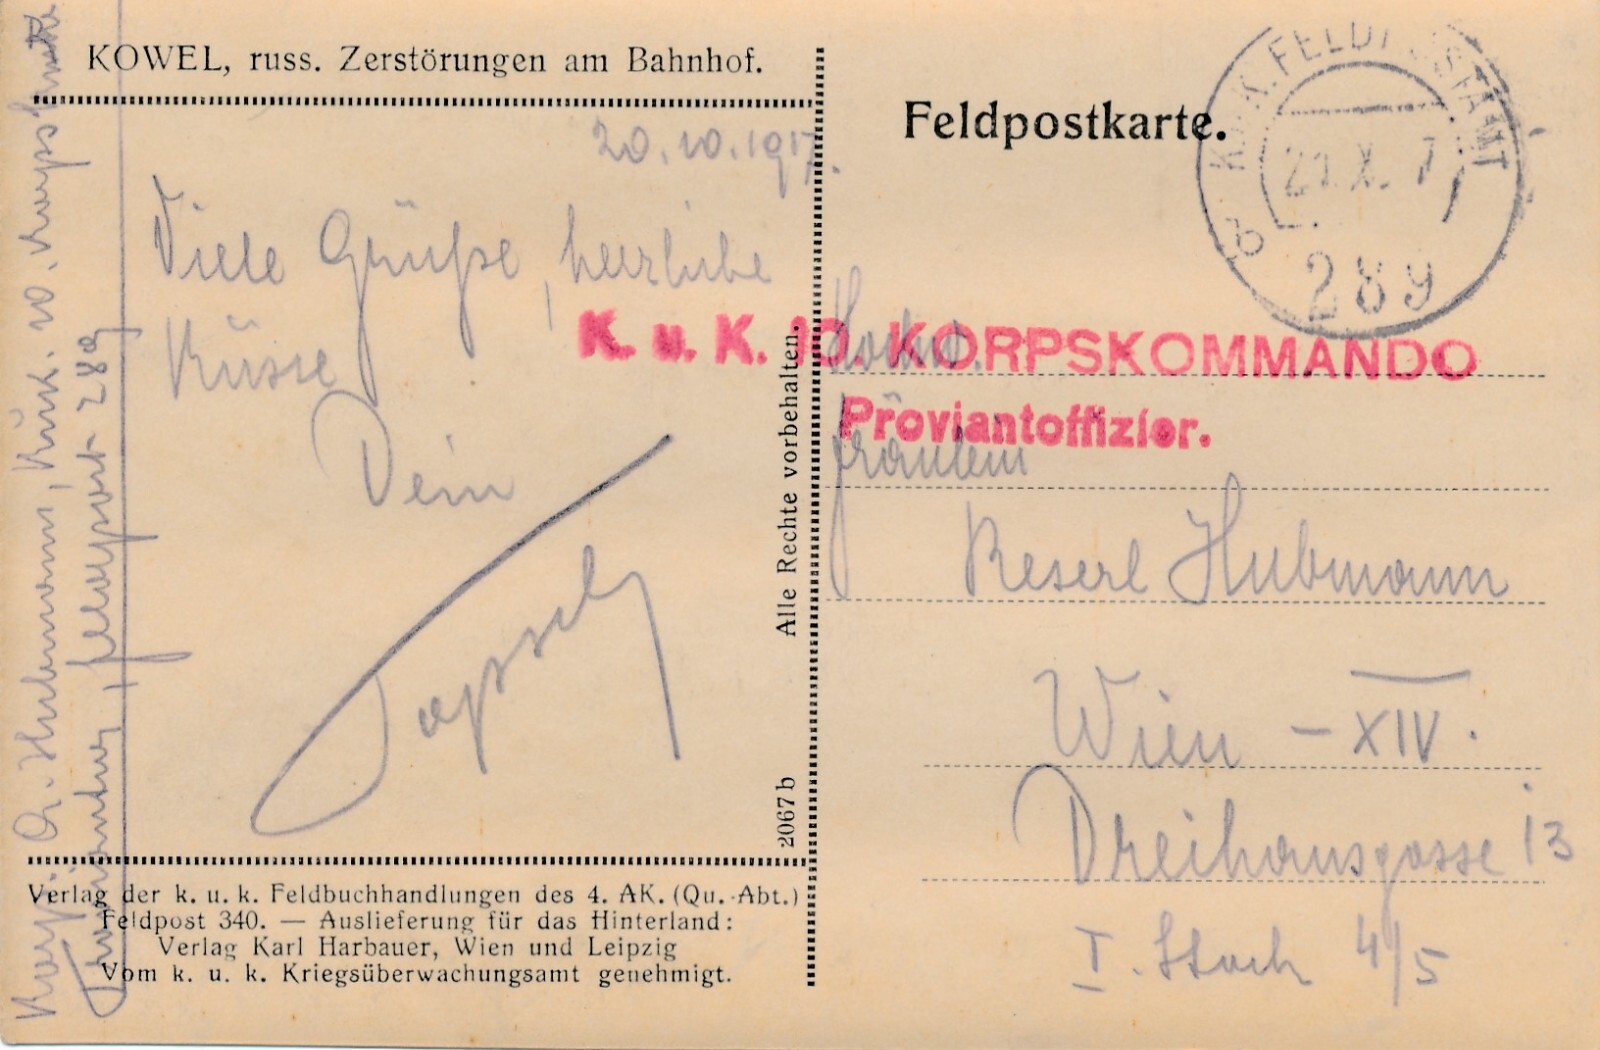 KOWEL, russ. Zerstörungen am Bahnhof.
20.10.1917.
Viele Grüße, herzliche
Küsse
Dein
Alle Rechte vorbehalten.
2067b
Verlag der k. u. k. Feldbuchhandlungen des 4. AK. (Qu.-Abt.)
Feldpost 340. — Auslieferung für das Hinterland:
Verlag Karl Harbauer, Wien und Leipzig
Vom k. u. k. Kriegsüberwachungsamt genehmigt.
Hubmann, K.u.K. 10. Korps
Feldpost 289
Feldpostkarte.
K.u.K. FELDPOSTAMT
21.X.17
b
289
K. u. K. 10. KORPSKOMMANDO
Proviantoffizier.
Fräulein
Reserl Hubmann
Wien – XIV.
Dreihausgasse 13
I. Stock 4/5